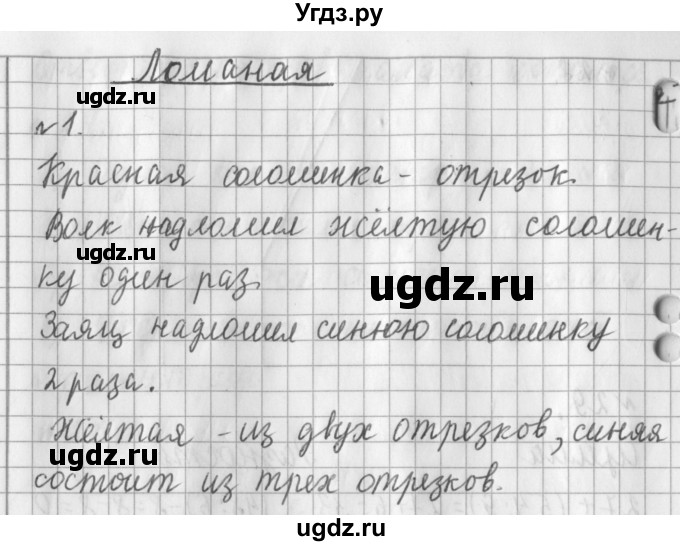 Угдз.ру
Ломаная
ugdz.ru
ugdz.ru
№1.
Красная соломинка - отрезок.
Волк надломил жёлтую соломин-
ку один раз.
ugdz.ru
ugdz.ru
Заяц надломил синюю соломинку
2 раза.
ugdz.ru
ugdz.ru
Жёлтая - из двух отрезков, синяя
состоит из трех отрезков.
ugdz.ru